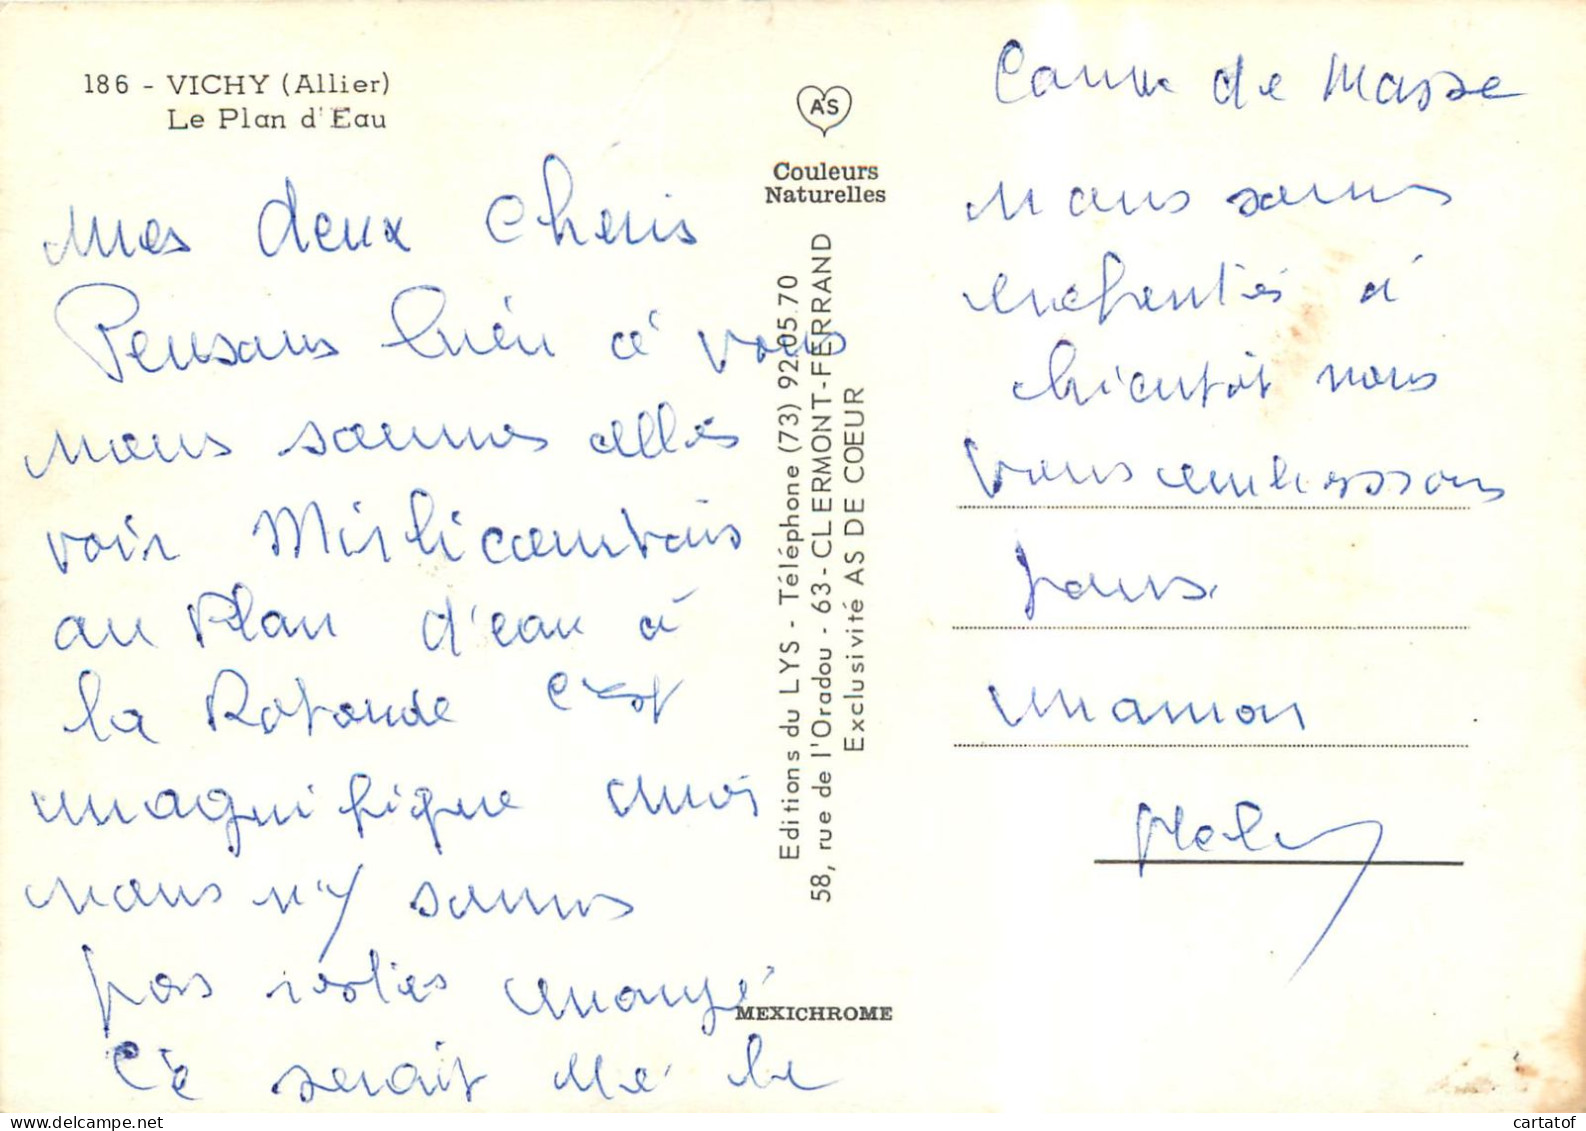 186 - VICHY (Allier)
Le Plan d'Eau
Mes deux Chéris
Pensons bien à vous
nous sommes allés
voir Mislicantois
au Plan d'eau à
la Rotonde C'est
magnifique mais
nous n'y sommes
pas restés mangé
Cè serait
AS
Couleurs
Naturelles
Editions du LYS - Téléphone (73) 92.05.70
58, rue de l'Oradou - 63 - CLERMONT-FERRAND
Exclusivité AS DE COEUR
MEXICHROME
de Masse
nous sommes
enchantés à
bientôt nous
vous embrassons
maman
cartatof